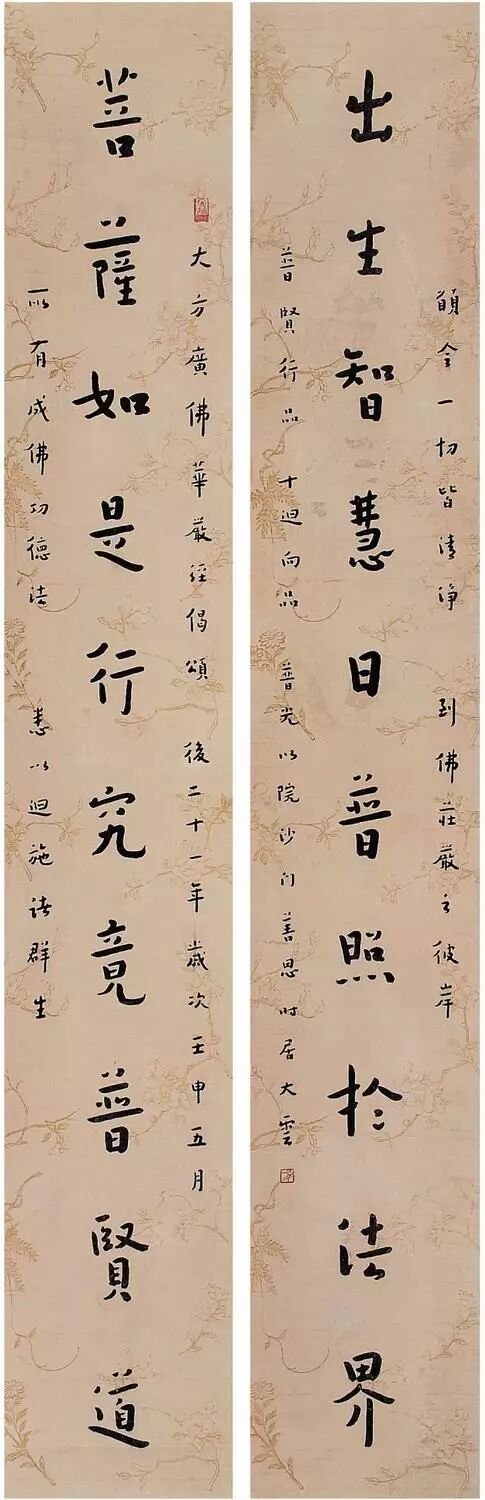 願令一切皆清淨 到佛莊嚴之彼岸
出生智慧日普照於法界
普賢行品 十迴向品 普光以院沙门善思 时居大雲
大方廣佛華嚴經偈頌 後二十一年歲次壬申五月
菩薩如是行究竟普賢道
所有成佛功德法 悉以迴施諸群生